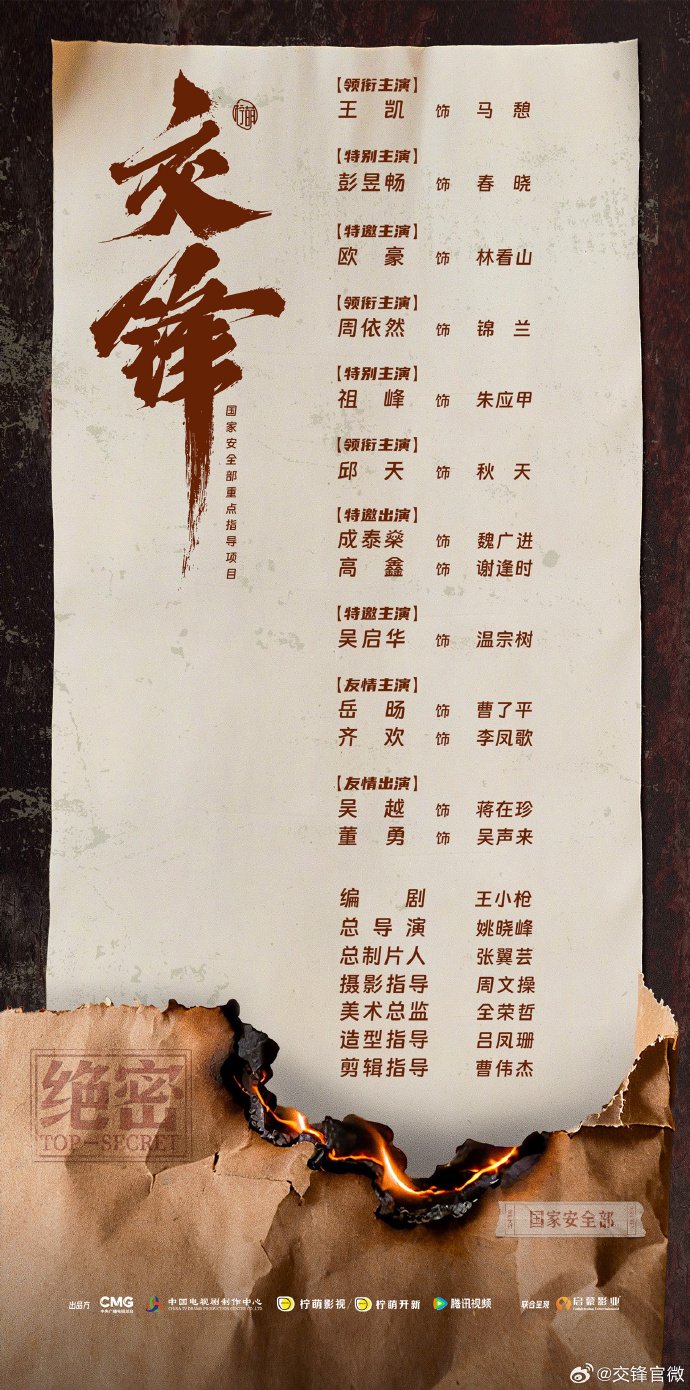 交锋
柠萌
国家安全部重点指导项目
【领衔主演】
王凯 饰 马憩
【特别主演】
彭昱畅 饰 春晓
【特邀主演】
欧豪 饰 林看山
【领衔主演】
周依然 饰 锦兰
【特别主演】
祖峰 饰 朱应甲
【领衔主演】
邱天 饰 秋天
【特邀出演】
成泰燊 饰 魏广进
高鑫 饰 谢逢时
【特邀主演】
吴启华 饰 温宗树
【友情主演】
岳旸 饰 曹了平
齐欢 饰 李凤歌
【友情出演】
吴越 饰 蒋在珍
董勇 饰 吴声来
编剧 王小枪
总导演 姚晓峰
总制片人 张翼芸
摄影指导 周文操
美术总监 全荣哲
造型指导 吕凤珊
剪辑指导 曹伟杰
绝密
TOP-SECRET
国家安全部
出品方 CMG 中央广播电视总台 中国电视剧制作中心 CHINA TV DRAMA PRODUCTION CENTER CO.,LTD 柠萌影视/柠萌开新 腾讯视频 联合呈现 启蒙影业
@交锋官微